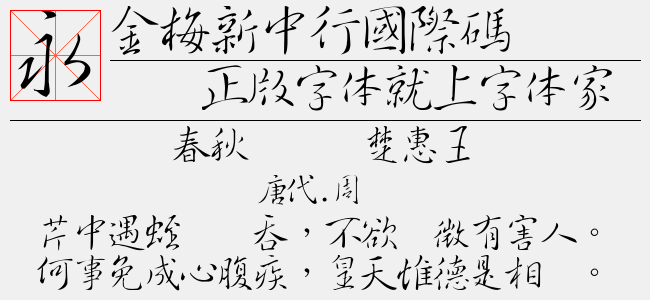 永
金梅新中行國際碼
正版字体就上字体家
春秋 楚惠王
唐代.周
芹中遇蛭 吞，不欲 徵有害人。
何事免成心腹疾，皇天惟德是相 。